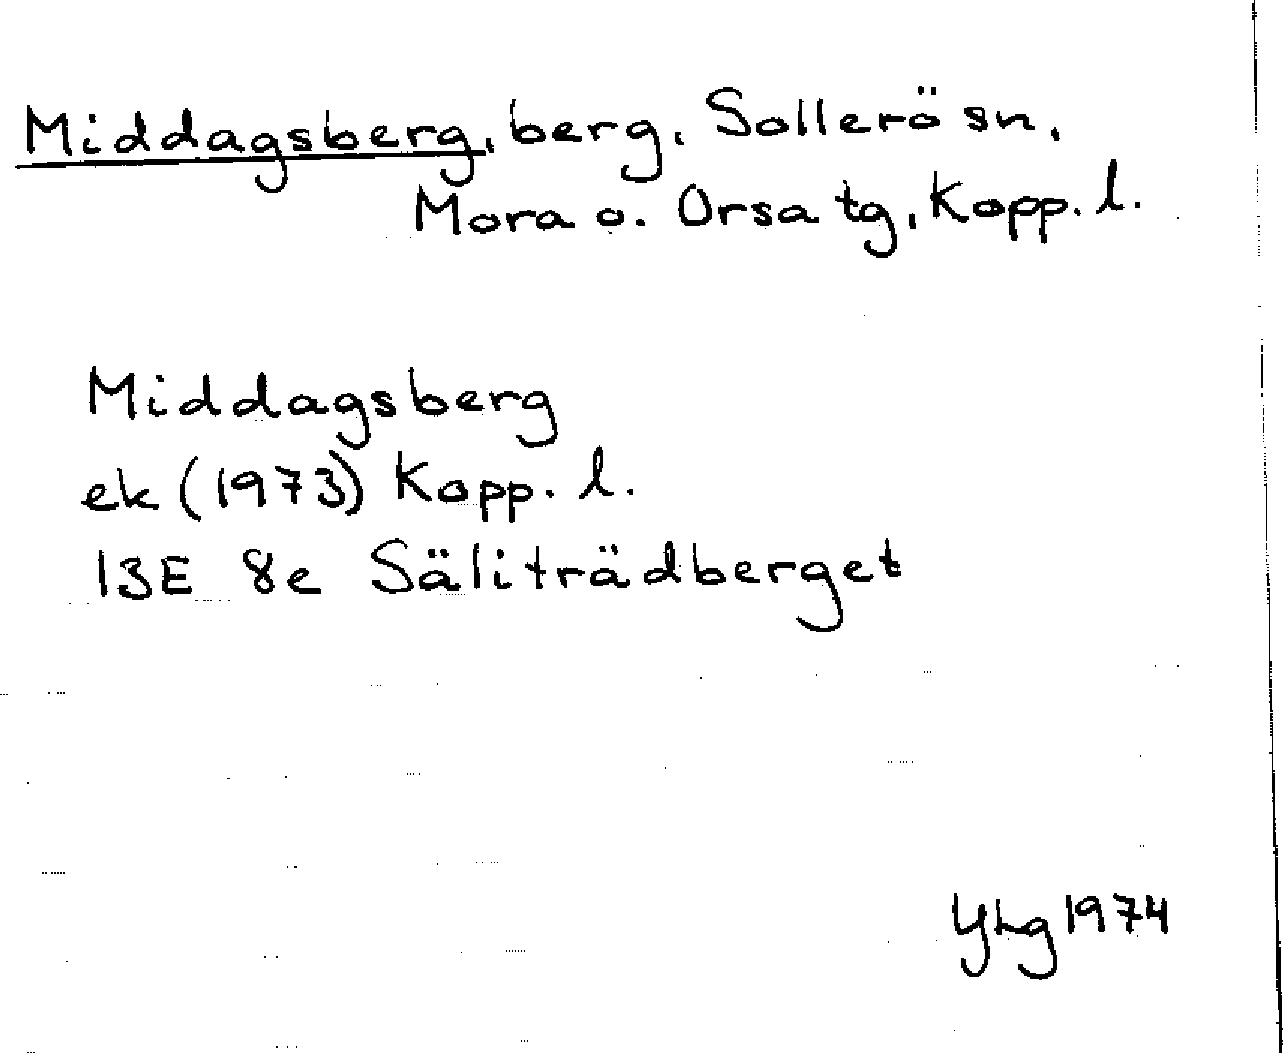 Middagsberg, berg, Sollerö sn,
Mora o. Orsa tg, Kopp. l.
Middagsberg
ek (1973) Kopp. l.
13E 8e Säliträdberget
YLg 1974